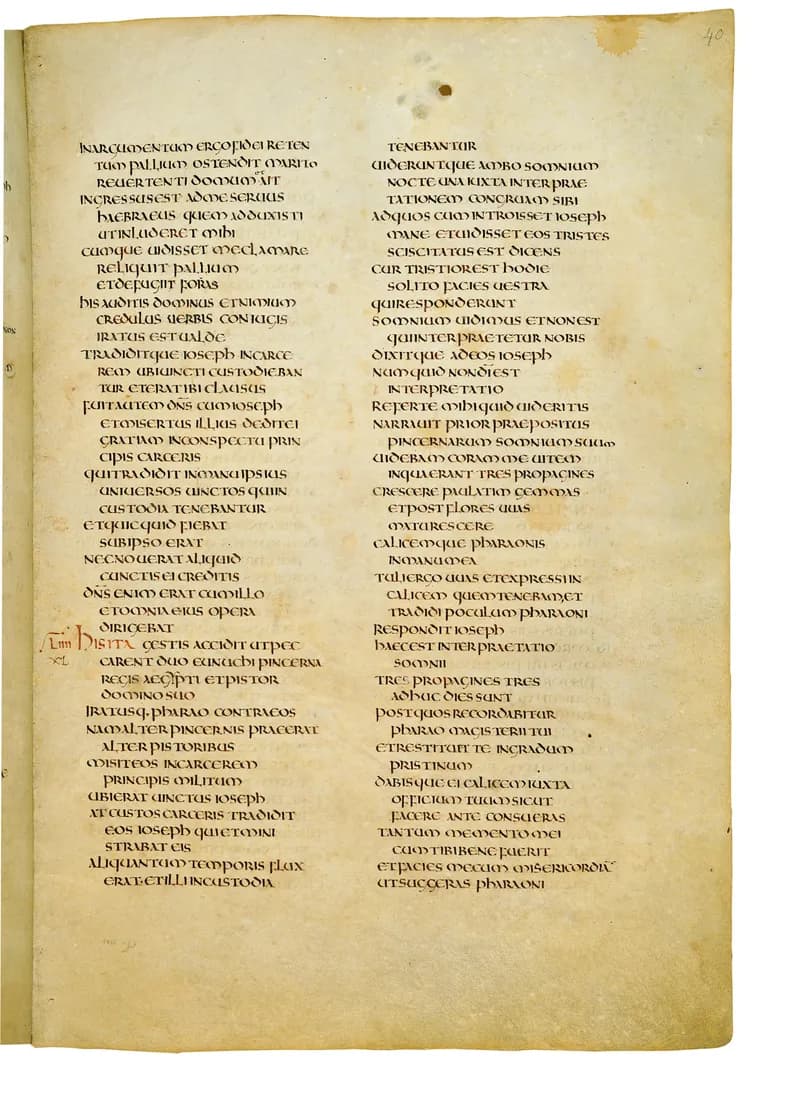 40
INARGUMENTUM ERGO FIDEI RETEN
TUM PALLIUM OSTENDIT MARITO
REUERTENTI DOMUM ET AIT
INGRESSUS EST AD ME SERUUS
HAEBRAEUS QUEM ADDUXISTI
UT INLUDERET MIHI
CUMQUE UIDISSET ME CLAMARE
RELIQUIT PALLIUM
ET DEFUGIIT FORAS
HIS AUDITIS DOMINUS ET NIMIUM
CREDULUS UERBIS CONIUGIS
IRATUS EST UALDE
TRADIDITQUE IOSEPH IN CARCE
REM UBI UINCTI CUSTODIEBAN
TUR ET ERAT IBI CLAUSUS
FUIT AUTEM DN̄S CUM IOSEPH
ET MISERTUS ILLIUS DEDIT EI
GRATIAM IN CONSPECTU PRIN
CIPIS CARCERIS
QUI TRADIDIT IN MANU IPSIUS
UNIUERSOS UINCTOS QUI IN
CUSTODIA TENEBANTUR
ET QUICQUID FIEBAT
SUB IPSO ERAT
NEC NOUERAT ALIQUID
CUNCTIS EI CREDITIS
DN̄S ENIM ERAT CUM ILLO
ET OMNIA EIUS OPERA
DIRIGEBAT
LIIII HIS ITA GESTIS ACCIDIT UT PEC
XL CARENT DUO EUNUCHI PINCERNA
REGIS AEGIPTI ET PISTOR
DOMINO SUO
IRATUSQ. PHARAO CONTRA EOS
NAM ALTER PINCERNIS PRAEERAT
ALTER PISTORIBUS
MISIT EOS IN CARCEREM
PRINCIPIS MILITUM
UBI ERAT UINCTUS IOSEPH
AT CUSTOS CARCERIS TRADIDIT
EOS IOSEPH QUI ET MINI
STRABAT EIS
ALIQUANTUM TEMPORIS FLUX
ERAT. ET ILLI IN CUSTODIA
TENEBANTUR
UIDERUNTQUE AMBO SOMNIUM
NOCTE UNA IUXTA INTERPRAE
TATIONEM CONGRUAM SIBI
AD QUOS CUM INTROISSET IOSEPH
MANE ET UIDISSET EOS TRISTES
SCISCITATUS EST DICENS
CUR TRISTIOR EST HODIE
SOLITO FACIES UESTRA
QUI RESPONDERUNT
SOMNIUM UIDIMUS ET NON EST
QUI INTERPRAETETUR NOBIS
DIXITQUE AD EOS IOSEPH
NUMQUID NON DĪ EST
INTERPRETATIO
REFERTE MIHI QUID UIDERITIS
NARRAUIT PRIOR PRAEPOSITUS
PINCERNARUM SOMNIUM SUUM
UIDEBAM CORAM ME UITEM
IN QUA ERANT TRES PROPAGINES
CRESCERE PAULATIM GEMMAS
ET POST FLORES UUAS
MATURESCERE
CALICEMQUE PHARAONIS
IN MANU MEA
TULI ERGO UUAS ET EXPRESSI IN
CALICEM QUEM TENEBAM, ET
TRADIDI POCULUM PHARAONI
RESPONDIT IOSEPH
HAEC EST INTERPRAETATIO
SOMNII
TRES PROPAGINES TRES
ADHUC DIES SUNT
POST QUOS RECORDABITUR
PHARAO MAGISTERII TUI
ET RESTITUET TE IN GRADUM
PRISTINUM
DABISQUE EI CALICEM IUXTA
OFFICIUM TUUM SICUT
FACERE ANTE CONSUERAS
TANTUM MEMENTO MEI
CUM TIBI BENE FUERIT
ET FACIES MECUM MISERICORDIĀ
UT SUGGERAS PHARAONI